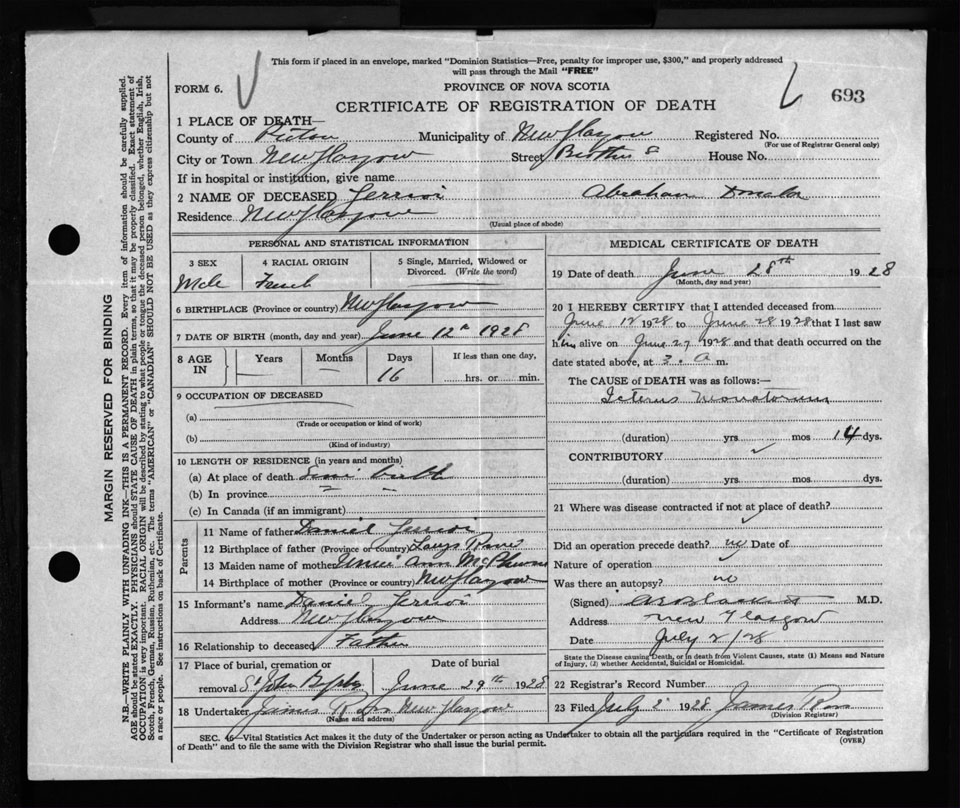 This form if placed in an envelope, marked "Dominion Statistics—Free, penalty for improper use, $300," and properly addressed
will pass through the Mail "FREE"
FORM 6.
PROVINCE OF NOVA SCOTIA
CERTIFICATE OF REGISTRATION OF DEATH
693
1 PLACE OF DEATH—
County of Pictou Municipality of New Glasgow Registered No.
(For use of Registrar General only)
City or Town New Glasgow Street House No.
If in hospital or institution, give name
2 NAME OF DECEASED Abraham
Residence New Glasgow
(Usual place of abode)
PERSONAL AND STATISTICAL INFORMATION
3 SEX 4 RACIAL ORIGIN 5 Single, Married, Widowed or
Divorced. (Write the word)
Male French
6 BIRTHPLACE (Province or country) New Glasgow
7 DATE OF BIRTH (month, day and year) June 12th 1928
8 AGE IN Years Months Days If less than one day,
16 hrs. or min.
9 OCCUPATION OF DECEASED
(a)
(Trade or occupation or kind of work)
(b)
(Kind of industry)
10 LENGTH OF RESIDENCE (in years and months)
(a) At place of death birth
(b) In province
(c) In Canada (if an immigrant)
Parents
11 Name of father Daniel
12 Birthplace of father (Province or country)
13 Maiden name of mother Ann
14 Birthplace of mother (Province or country) New Glasgow
15 Informant's name Daniel
Address New Glasgow
16 Relationship to deceased Father
17 Place of burial, cremation or Date of burial
removal St John June 29th 1928
18 Undertaker James New Glasgow
(Name and address)
MEDICAL CERTIFICATE OF DEATH
19 Date of death June 28th 1928
(Month, day and year)
20 I HEREBY CERTIFY that I attended deceased from
June 12 1928 to June 28 1928 that I last saw
him alive on June 27 1928 and that death occurred on the
date stated above, at 3. a m.
The CAUSE of DEATH was as follows:—
Icterus Neonatorum
(duration) yrs. mos 14 dys.
CONTRIBUTORY
(duration) yrs. mos. dys.
21 Where was disease contracted if not at place of death?
Did an operation precede death? no Date of
Nature of operation
Was there an autopsy? no
(Signed) M.D.
Address New Glasgow
Date July 2/28
State the Disease causing Death, or in death from Violent Causes, state (1) Means and Nature
of Injury, (2) whether Accidental, Suicidal or Homicidal.
22 Registrar's Record Number
23 Filed July 2 1928 James
(Division Registrar)
SEC. 46—Vital Statistics Act makes it the duty of the Undertaker or person acting as Undertaker to obtain all the particulars required in the "Certificate of Registration
of Death" and to file the same with the Division Registrar who shall issue the burial permit.
(OVER)
MARGIN RESERVED FOR BINDING
N.B.—WRITE PLAINLY WITH UNFADING INK—THIS IS A PERMANENT RECORD. Every item of information should be carefully supplied.
AGE should be stated EXACTLY. PHYSICIANS should STATE CAUSE OF DEATH in plain terms, so that it may be properly classified. Exact statement of
OCCUPATION is very important. RACIAL ORIGIN will be described by stating to what people or tongue the deceased person belonged, whether English, Irish,
Scotch, French, German, Russian, Ruthenian, etc. The terms "AMERICAN" or "CANADIAN" SHOULD NOT BE USED as they express citizenship but not
a race or people. See instructions on back of Certificate.